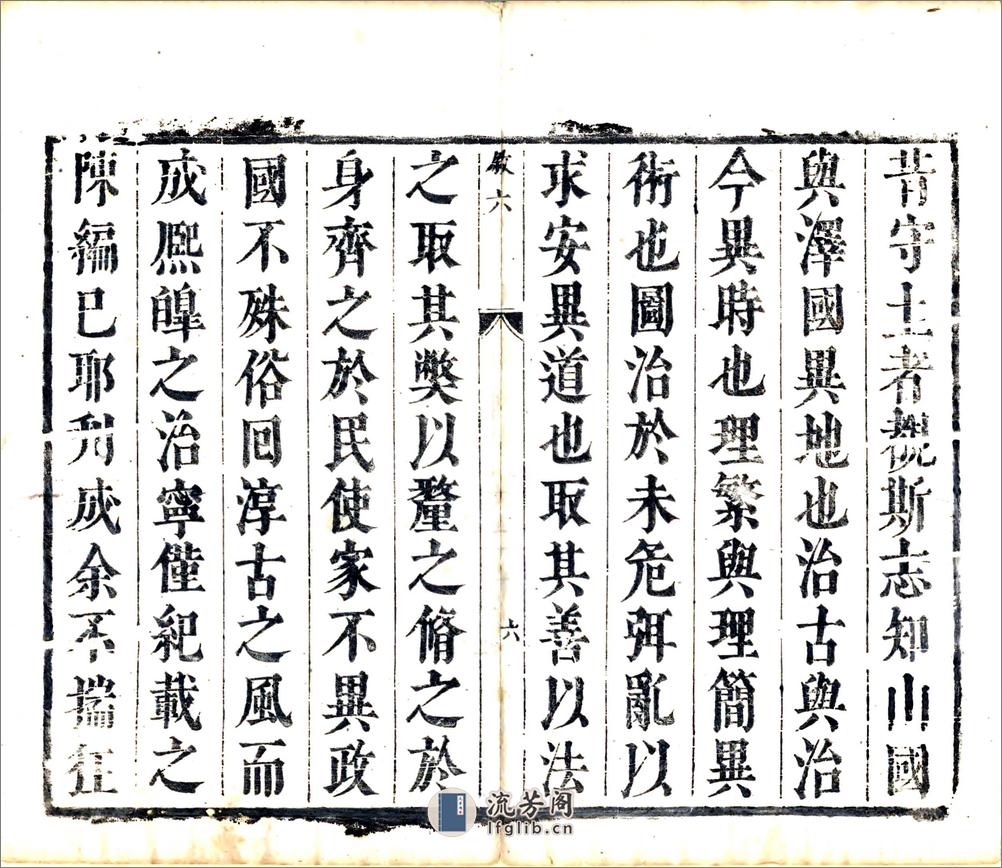 昔守土者覩斯志知山國
與澤國異地也治古與治
今異時也理繁與理簡異
術也圖治於未危弭亂以
求安異道也取其善以法
叙六
六
之取其獘以釐之脩之於
身齊之於民使家不異政
國不殊俗回淳古之風而
成熈皥之治寧僅紀載之
陳編已耶刋成余不揣狂
流芳阁
lfglib.cn